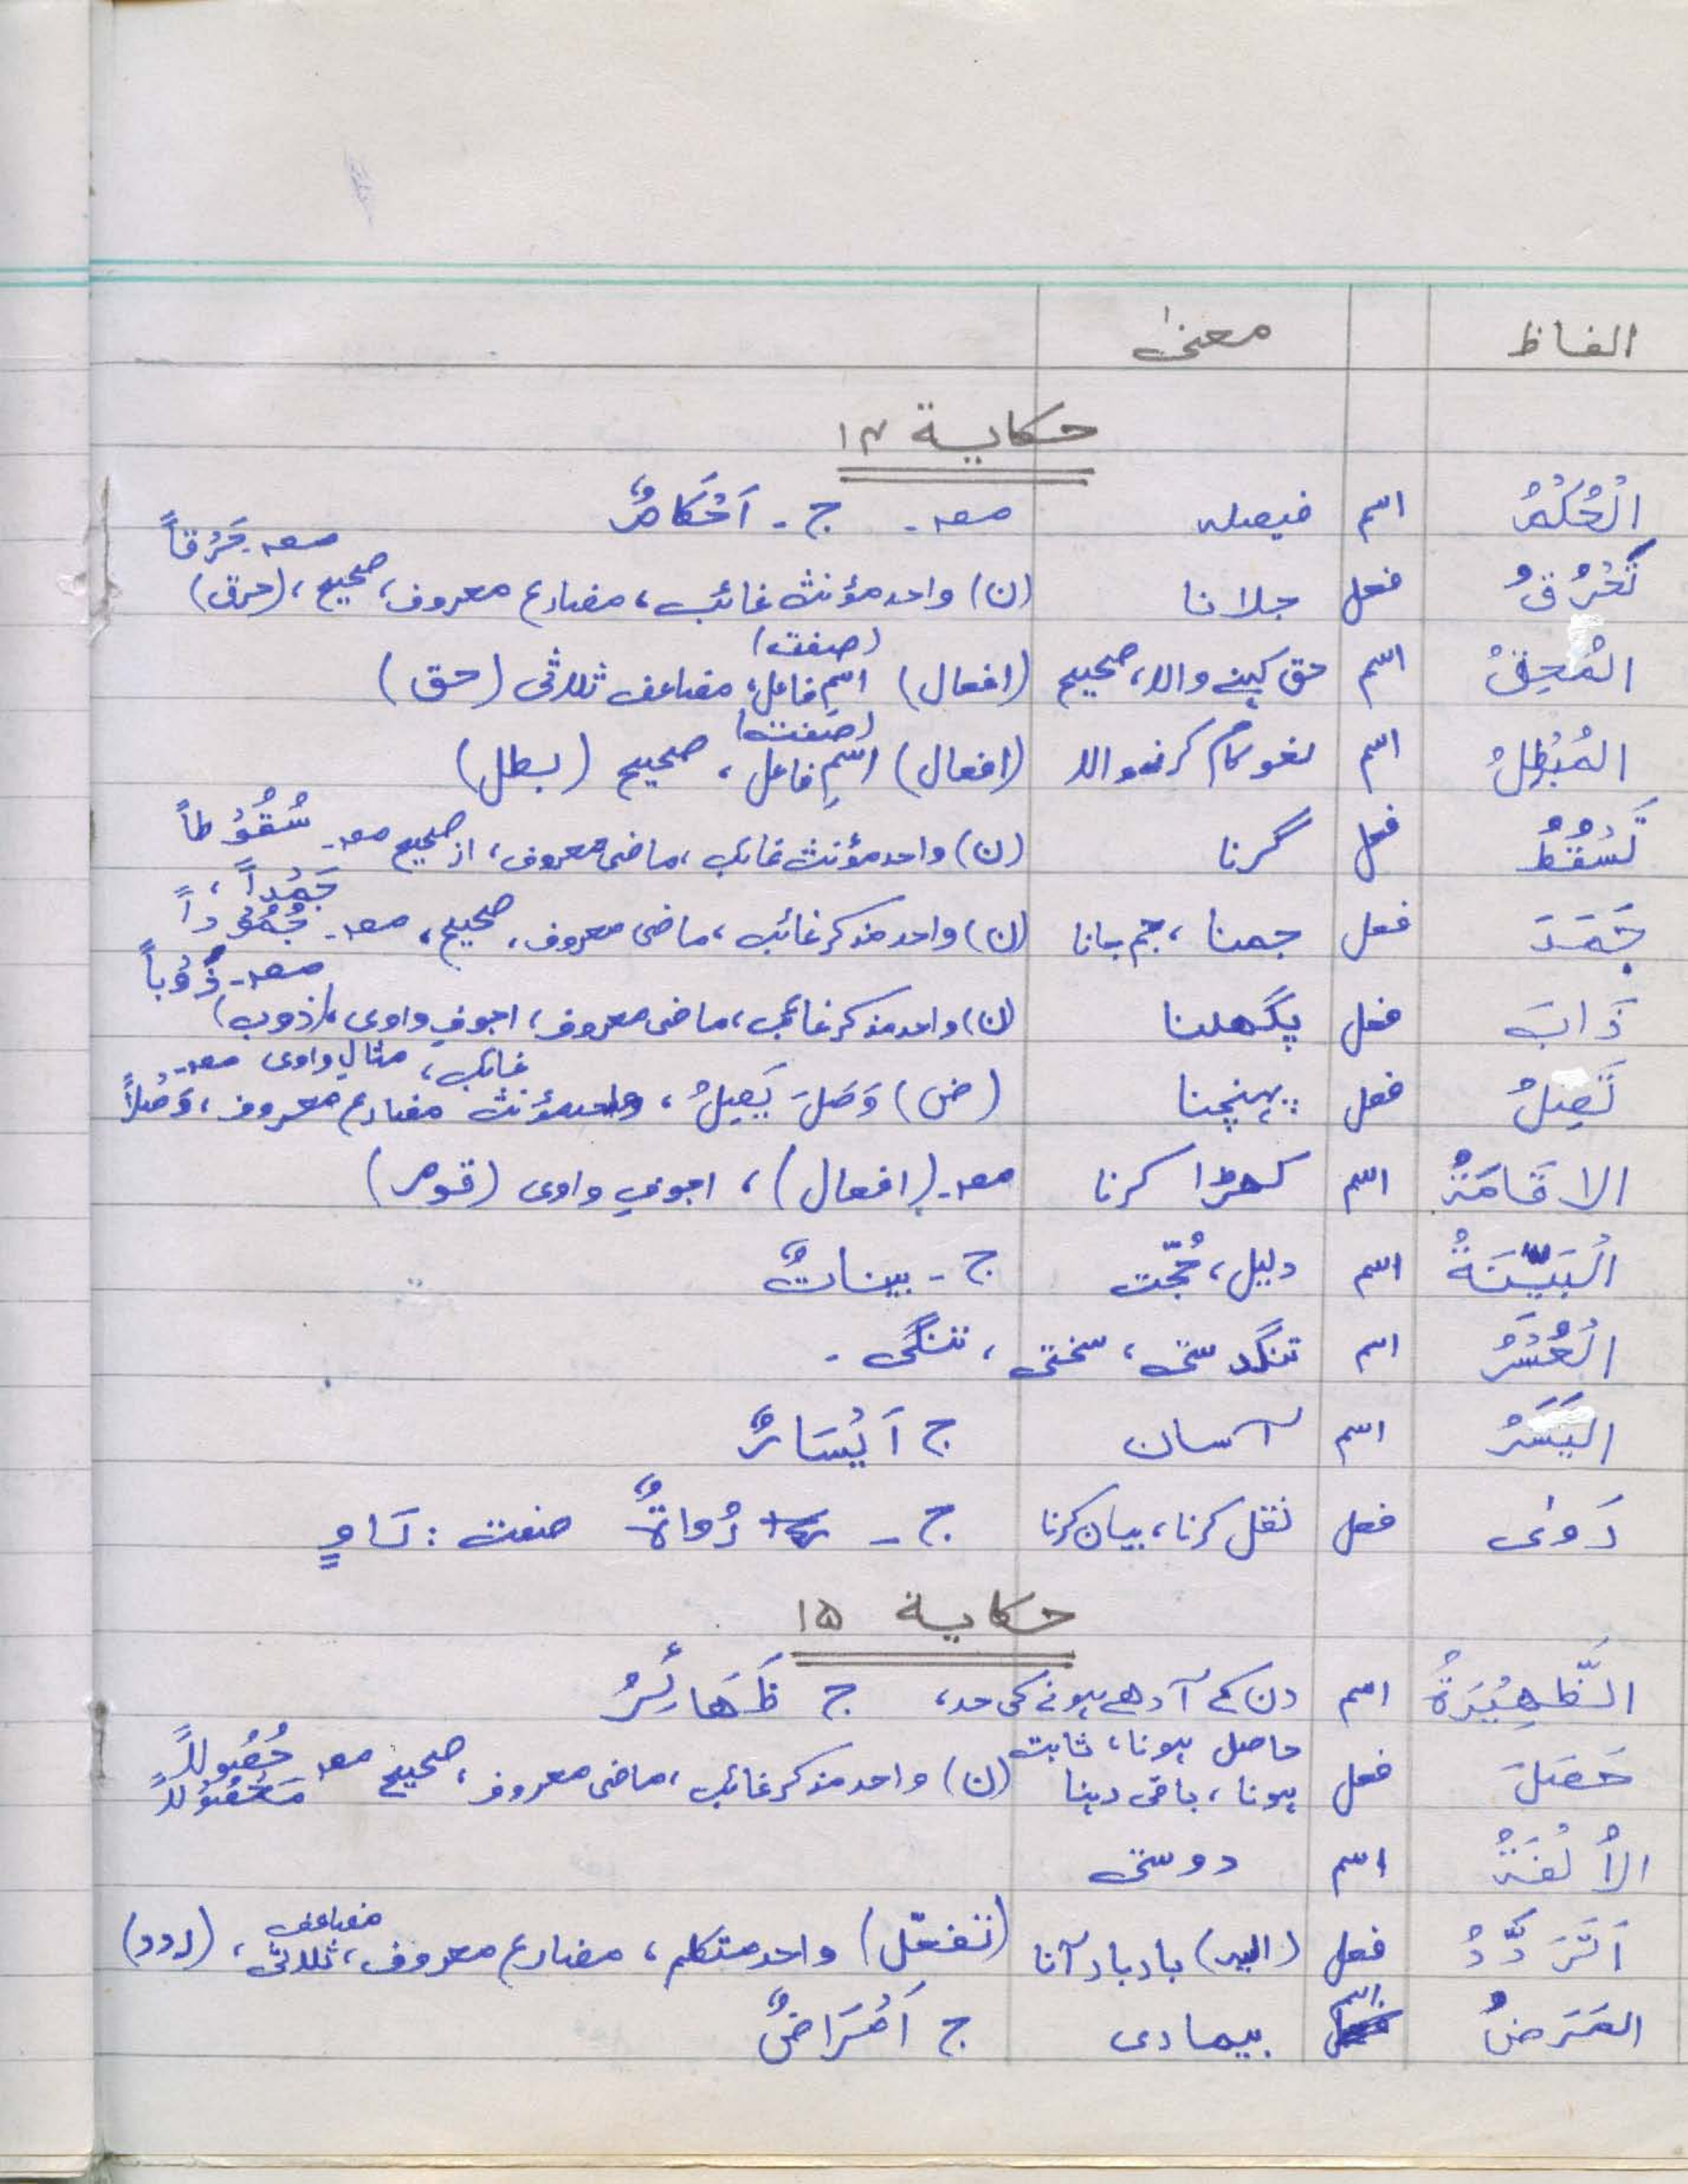 الفاظ معنیٰ
حکایة ۱۴
الْحُکْمُ اسم فیصلہ مصد۔ ج ۔ اَحْکَامٌ
تَحْرُقُ فعل جلانا (ن) واحد مؤنث غائب، مضارع معروف، صحیح، (حرق) مصد۔ حَرْقاً
المُحِقُّ اسم حق کہنے والا، صحیح (افعال) اسمِ فاعل، (صفت) مضاعف ثلاثی (حق)
المُبْطِلُ اسم لغو کام کرنیوالا (افعال) اسمِ فاعل، (صفت) صحیح (بطل)
تَسْقُطُ فعل گرنا (ن) واحد مؤنث غائب، ماضی معروف، از صحیح مصد۔ سُقُوْطاً
جَمَدَ فعل جمنا، جم جانا (ن) واحد مذکر غائب، ماضی معروف، صحیح، مصد۔ جَمْداً، جُمُوْداً
ذَابَ فعل پگھلنا (ن) واحد مذکر غائب، ماضی معروف، اجوفِ واوی، (ذوب) مصد۔ ذَوْباً
تَصِلُ فعل پہنچنا (ض) وَصَلَ یَصِلُ، واحد مؤنث غائب، مضارع معروف، مثالِ واوی مصد۔ وَصْلاً
الاقَامَةُ اسم کھڑا کرنا مصد۔ (افعال)، اجوفِ واوی (قوم)
الْبَیِّنَةُ اسم دلیل، حُجّت ج ۔ بینَاتٌ
الْعُسْرُ اسم تنگدستی، سختی، تنگی ۔
الیَسَرُ اسم آسان ج اَیْسَارٌ
رَوٰی فعل نقل کرنا، بیان کرنا ج ۔ رُوَاةٌ صفت : رَاوٍ
حکایة ۱۵
الظَّهِیْرَةُ اسم دن کے آدھے ہونے کی حد، ج ظَهَائِرُ
حَصَلَ فعل حاصل ہونا، ثابت ہونا، باقی رہنا (ن) واحد مذکر غائب، ماضی معروف، صحیح مصد حُصُولاً مَحْصُوْلاً
الأُلْفَةُ اسم دوستی
اَتَرَدَّدُ فعل (الیہ) باربار آنا (تفعّل) واحد متکلم، مضارع معروف، مضاعف ثلاثی، (ردد)
المَرَضُ اسم بیماری ج اَمْرَاضٌ